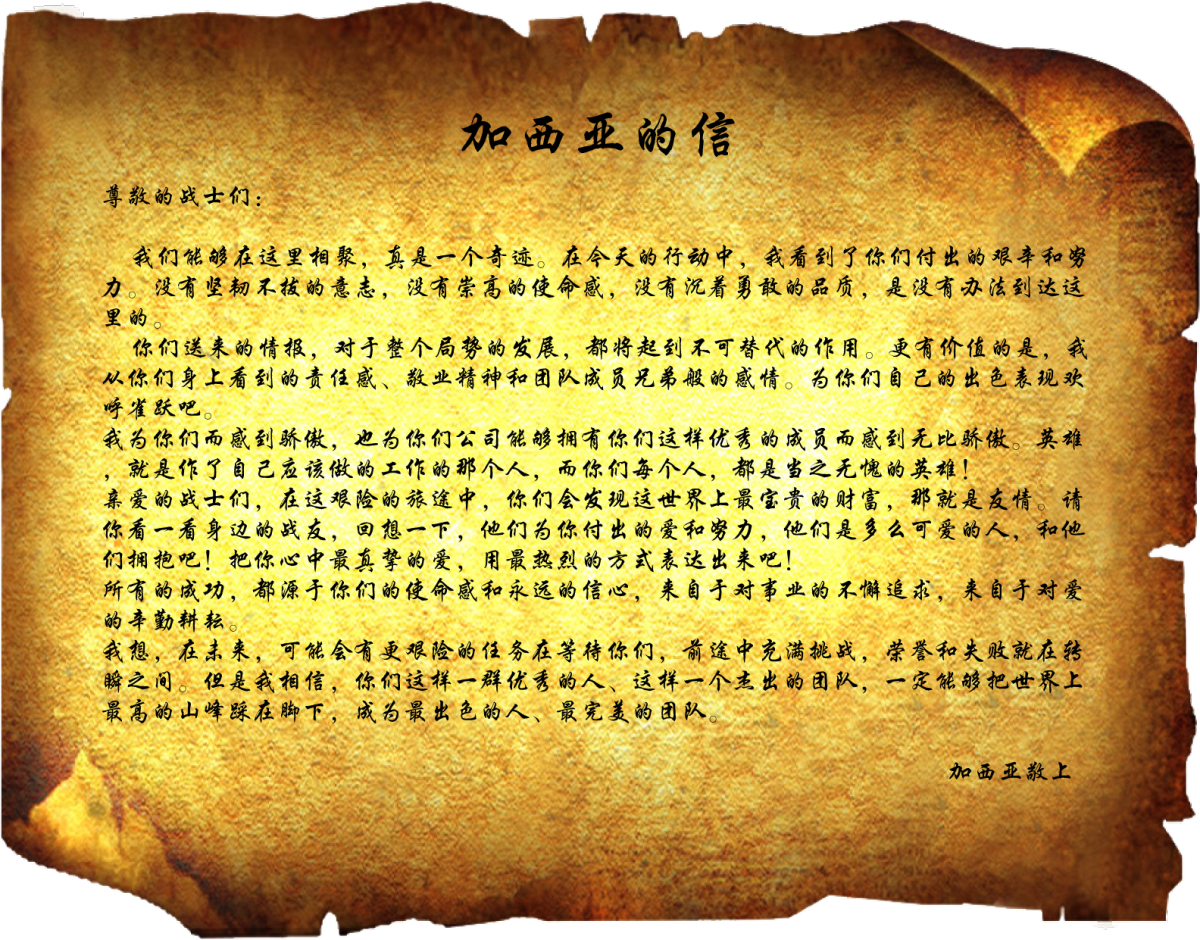 加西亚的信
尊敬的战士们：
我们能够在这里相聚，真是一个奇迹。在今天的行动中，我看到了你们付出的艰辛和努
力。没有坚韧不拔的意志，没有崇高的使命感，没有沉着勇敢的品质，是没有办法到达这
里的。
你们送来的情报，对于整个局势的发展，都将起到不可替代的作用。更有价值的是，我
从你们身上看到的责任感、敬业精神和团队成员兄弟般的感情。为你们自己的出色表现欢
呼雀跃吧。
我为你们而感到骄傲，也为你们公司能够拥有你们这样优秀的成员而感到无比骄傲。英雄
，就是作了自己应该做的工作的那个人，而你们每个人，都是当之无愧的英雄！
亲爱的战士们，在这艰险的旅途中，你们会发现这世界上最宝贵的财富，那就是友情。请
你看一看身边的战友，回想一下，他们为你付出的爱和努力，他们是多么可爱的人，和他
们拥抱吧！把你心中最真挚的爱，用最热烈的方式表达出来吧！
所有的成功，都源于你们的使命感和永远的信心，来自于对事业的不懈追求，来自于对爱
的辛勤耕耘。
我想，在未来，可能会有更艰险的任务在等待你们，前途中充满挑战，荣誉和失败就在转
瞬之间。但是我相信，你们这样一群优秀的人、这样一个杰出的团队，一定能够把世界上
最高的山峰踩在脚下，成为最出色的人、最完美的团队。
加西亚敬上